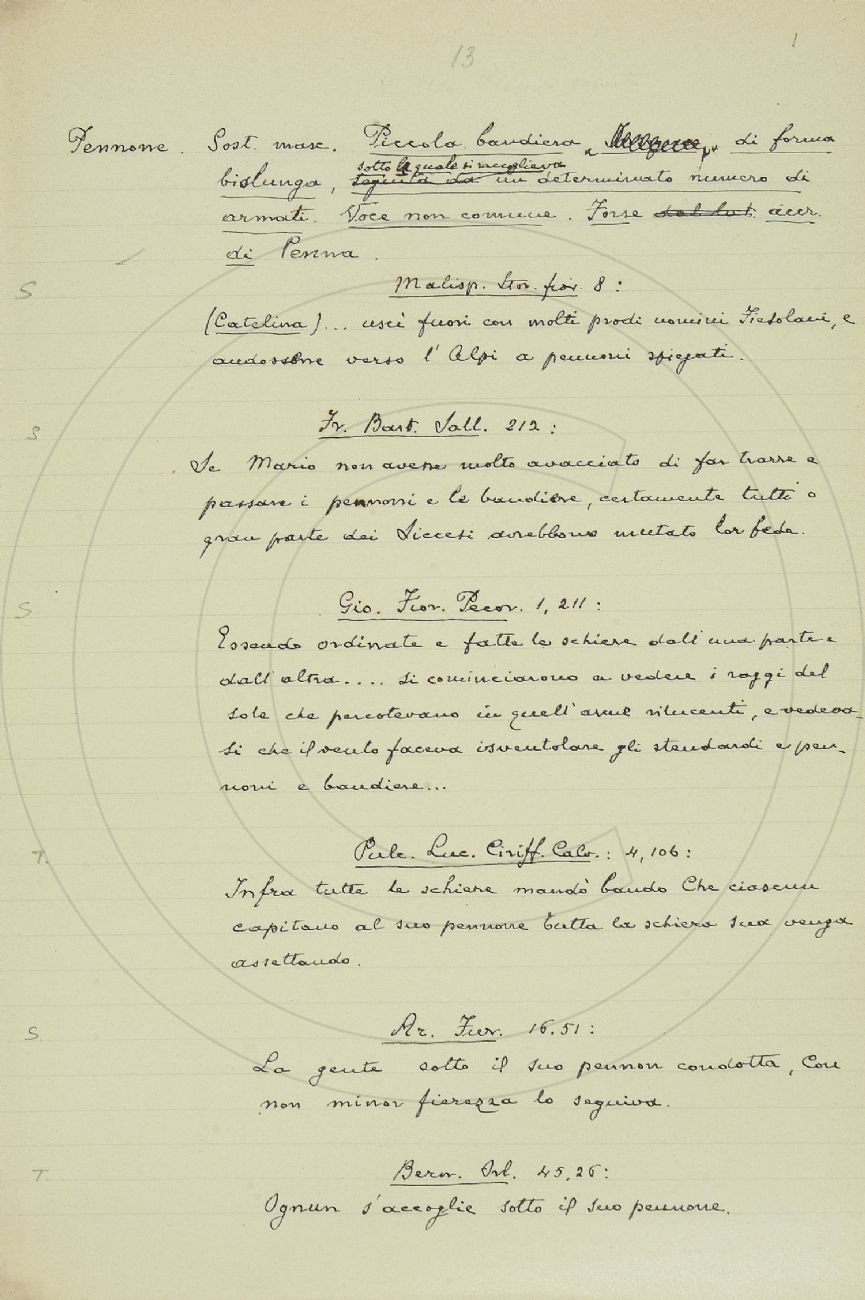 13
1
Pennone. Sost. masc. Piccola bandiera, di forma
sotto la quale si raccoglieva
bislunga, seguita da un determinato numero di
armati. Voce non comune. Forse dal lat. accr.
di Penna.
S Malisp. Stor. fior. 8:
(Catelina)... uscì fuori con molti prodi uomini Fiesolani, e
andossene verso l'Alpi a pennoni spiegati.
S Fr. Bart. Sall. 212:
Se Mario non avesse molto avacciato di far trarre e
passare i pennoni e le bandiere, certamente tutti o
gran parte dei Siccesi avrebbono mutato lor fede.
S Gio. Fior. Pecor. 1, 211:
Essendo ordinate e fatte le schiere dall'una parte e
dall'altra.... si cominciarono a vedere i raggi del
sole che percotevano in quell'arme rilucenti, e vedeva-
si che il vento faceva isventolare gli stendardi e pen-
noni e bandiere...
T. Pulc. Luc. Ciriff. Calv.: 4, 106:
Infra tutte le schiere mandò bando Che ciascun
capitano al suo pennone Tutta la schiera sua venga
assettando.
S Ar. Fur. 16.51:
La gente sotto il suo pennon condotta, Con
non minor fierezza lo seguiva.
T. Bern. Orl. 45, 26:
Ognun s'accoglie sotto il suo pennone.